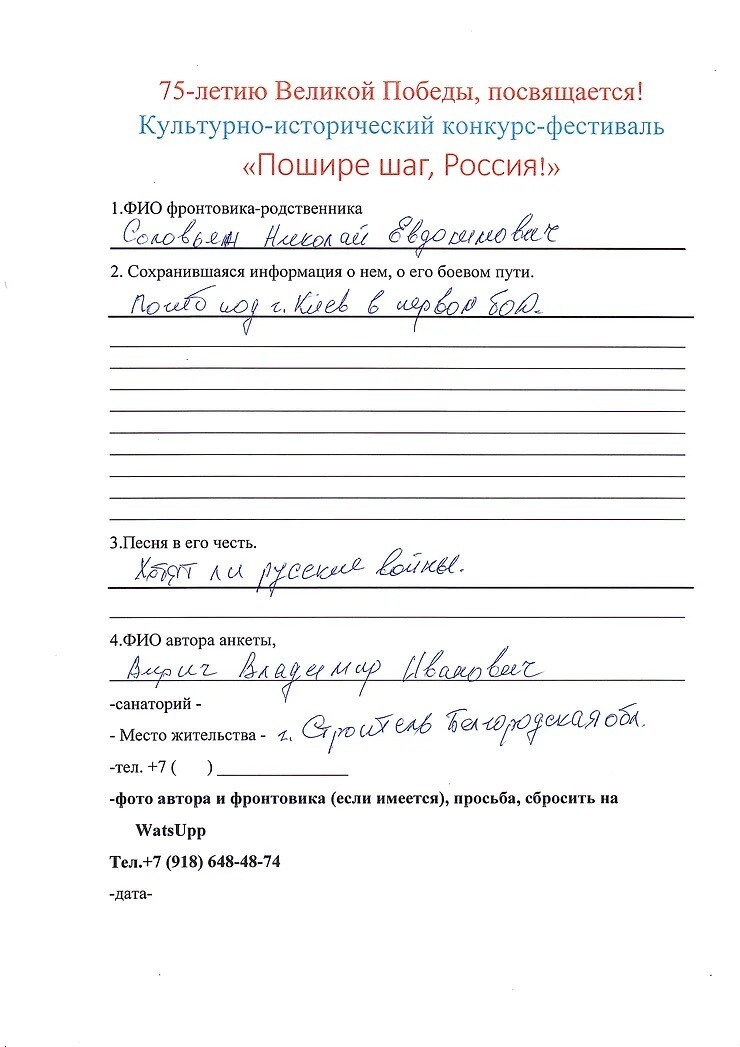 75-летию Великой Победы, посвящается!
Культурно-исторический конкурс-фестиваль
«Пошире шаг, Россия!»
1.ФИО фронтовика-родственника
Николай Евдокимович
2. Сохранившаяся информация о нем, о его боевом пути.
под г. Киев в первом бою.
3.Песня в его честь.
Хотят ли русские войны.
4.ФИО автора анкеты,
Владимир Иванович
-санаторий -
- Место жительства - г. Строитель Белгородская обл.
-тел. +7 ( ) ______________
-фото автора и фронтовика (если имеется), просьба, сбросить на
WatsUpp
Тел.+7 (918) 648-48-74
-дата-